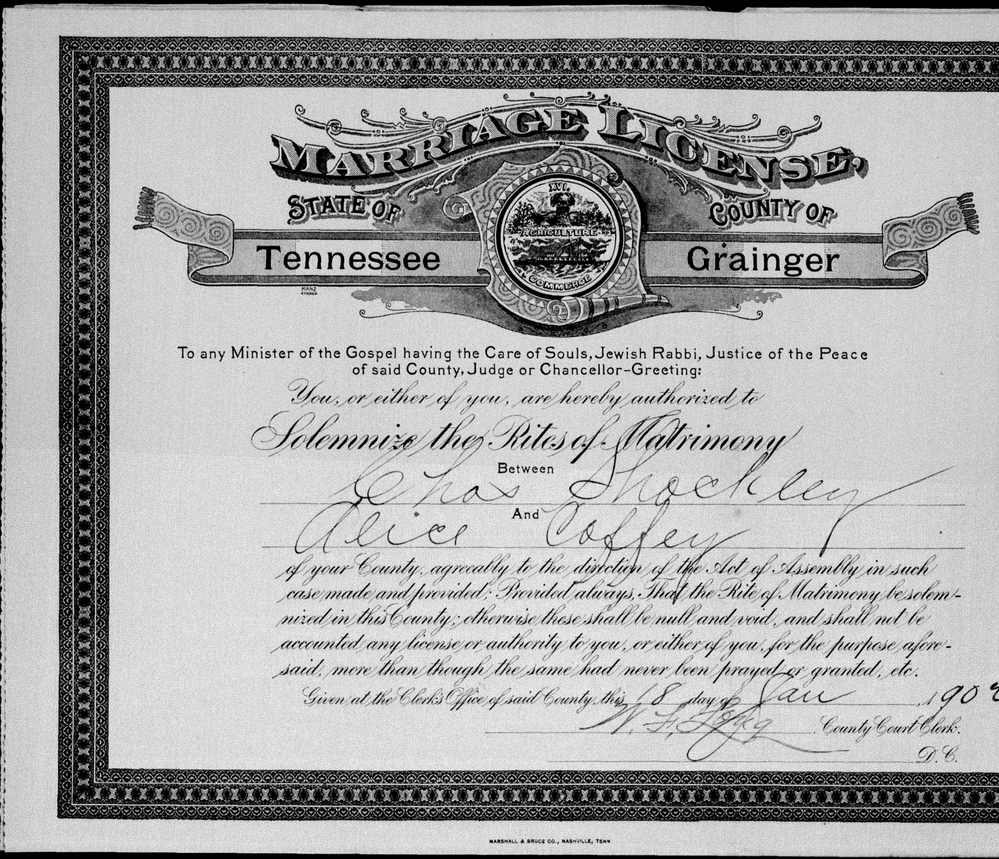 MARRIAGE LICENSE,
STATE OF
COUNTY OF
XVI.
AGRICULTURE
COMMERCE
Tennessee
Grainger
MANZ
To any Minister of the Gospel having the Care of Souls, Jewish Rabbi, Justice of the Peace
of said County, Judge or Chancellor-Greeting:
You, or either of you, are hereby authorized to
Solemnize the Rites of Matrimony
Between
Chas Shockley
And
Alice Coffey
of your County, agreeably to the direction of the Act of Assembly in such
case made and provided; Provided always, That the Rite of Matrimony be solem-
nized in this County; otherwise these shall be null and void, and shall not be
accounted any license or authority to you, or either of you, for the purpose afore-
said, more than though the same had never been prayed or granted, etc.
Given at the Clerk's Office of said County, this 18 day of Jan 190
W. F. County Court Clerk.
D. C.
MARSHALL & BRUCE CO., NASHVILLE, TENN